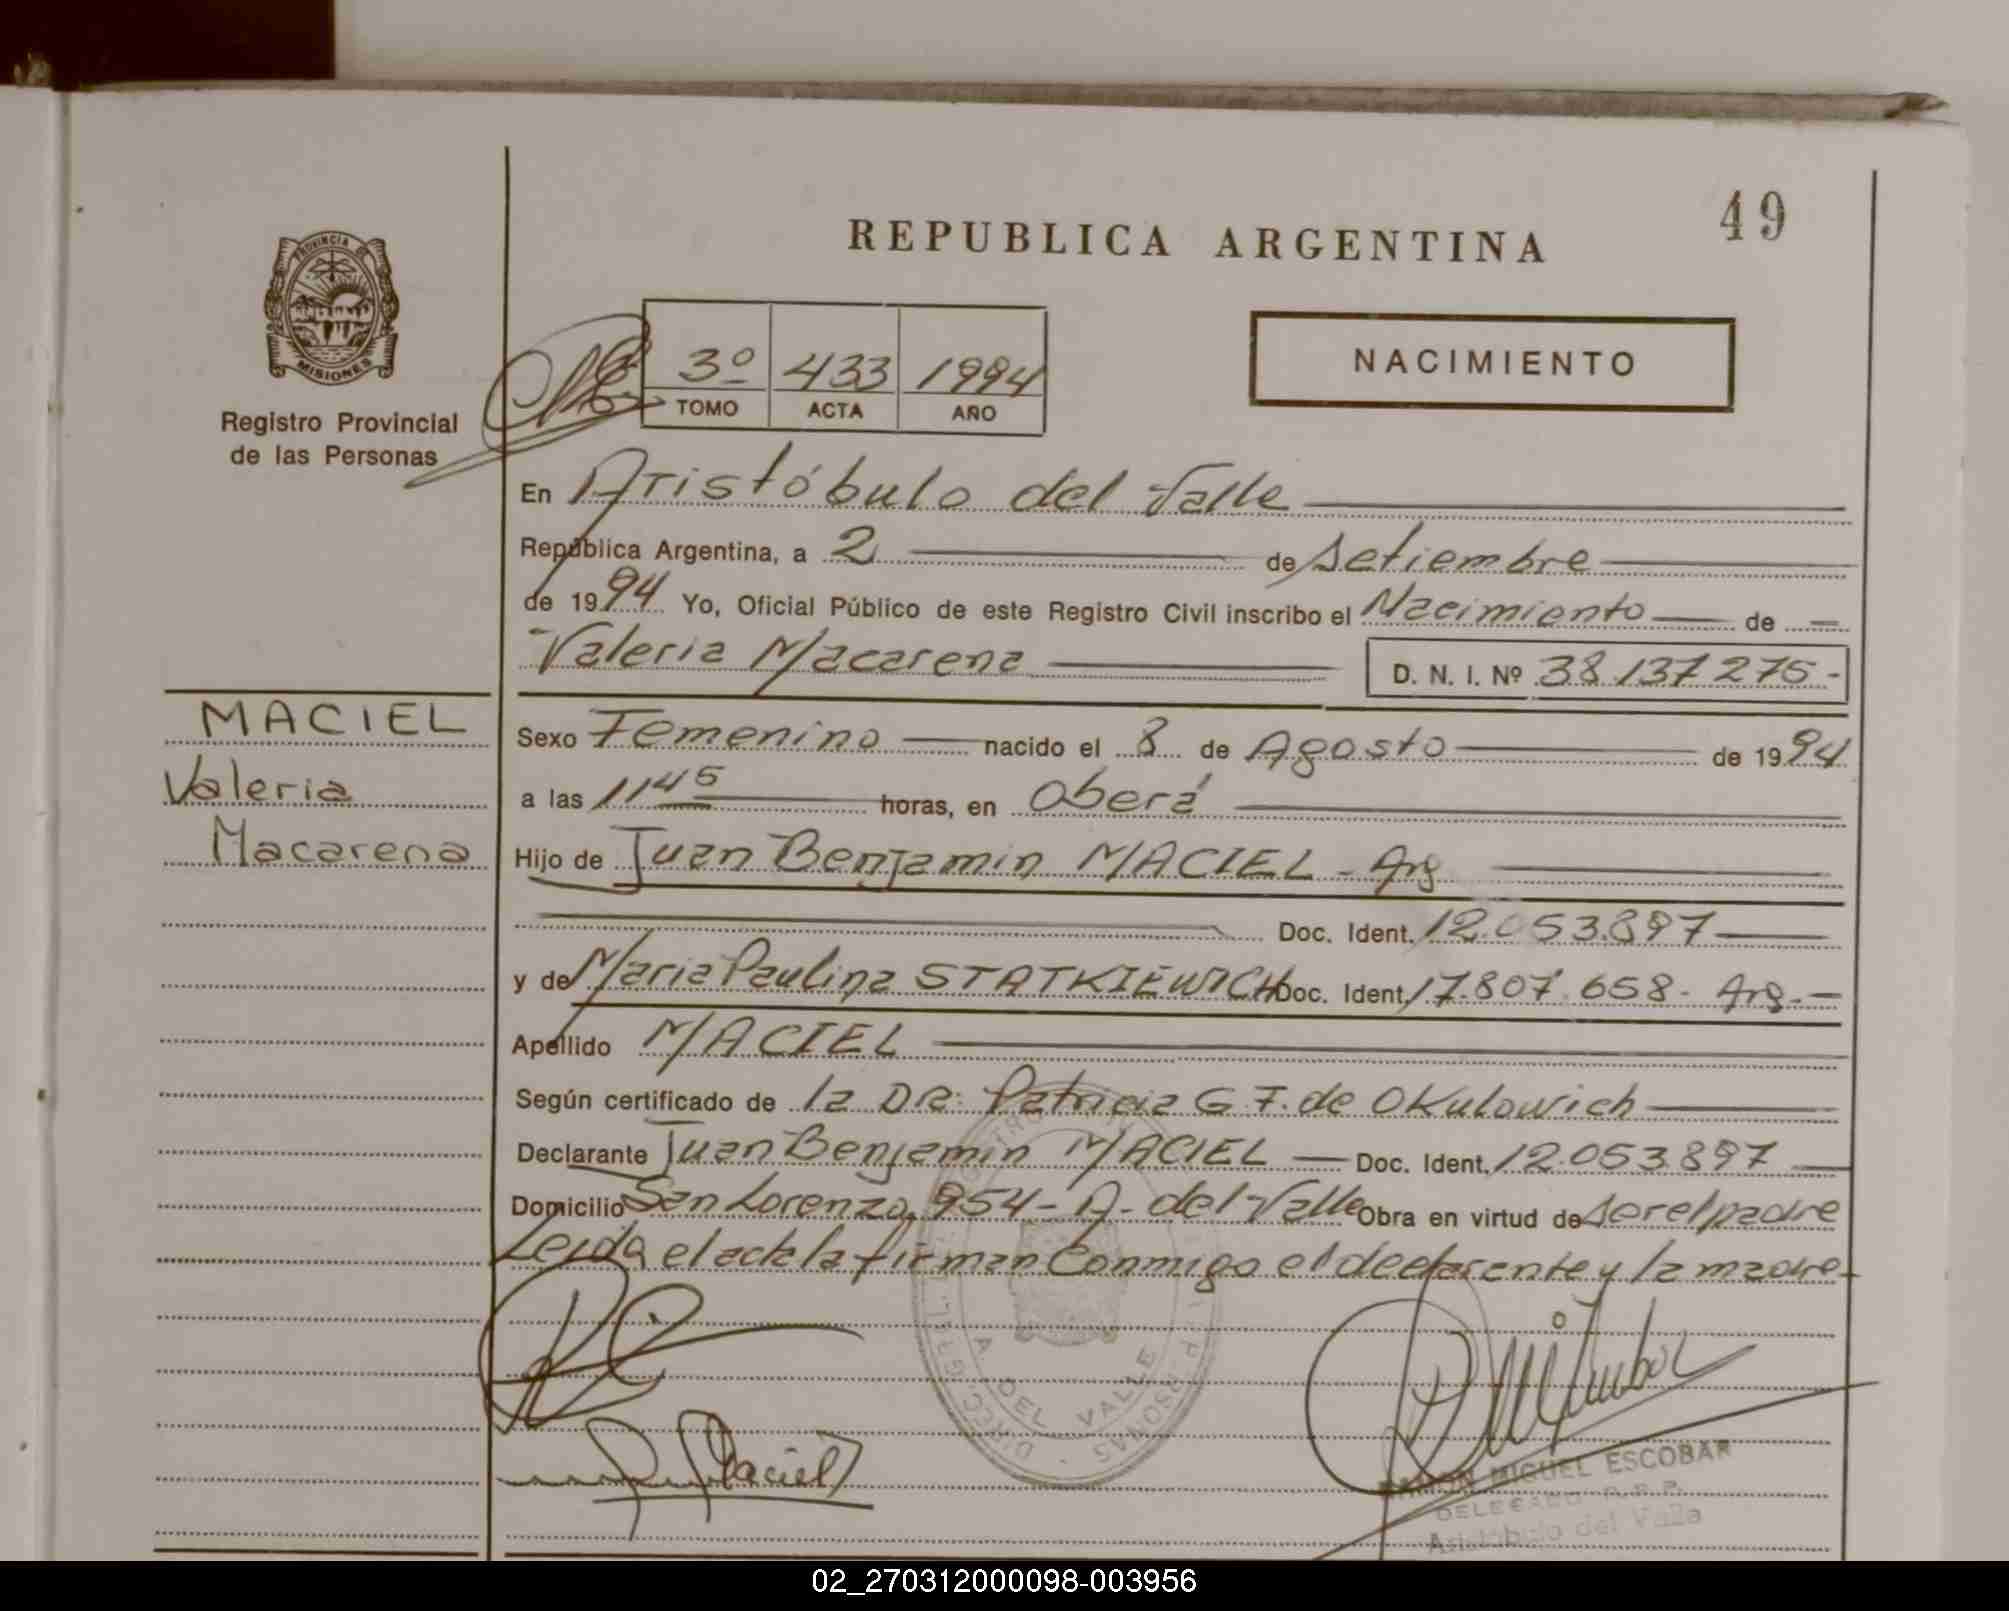 49
REPUBLICA ARGENTINA
PROVINCIA DE
MISIONES
Registro Provincial
de las Personas
3º 433 1994
TOMO ACTA AÑO
NACIMIENTO
En Aristóbulo del Valle
República Argentina, a 2 de Setiembre
de 1994 Yo, Oficial Público de este Registro Civil inscribo el Nacimiento de
Valeria Macarena D. N. I. Nº 38.137.275-
MACIEL
Valeria
Macarena
Sexo Femenino nacido el 8 de Agosto de 1994
a las 11 45 horas, en Oberá
Hijo de Juan Benjamin MACIEL - Arg
Doc. Ident. 12.053.897
y de Maria Paulina STATKIEWICH Doc. Ident. 17.807.658- Arg.-
Apellido MACIEL
Según certificado de la DRa: Patricia G F. de Okulowich
Declarante Juan Benjamin MACIEL Doc. Ident. 12.053.897
Domicilio San Lorenzo 954- A. del Valle Obra en virtud de ser el padre
Leida el acta la firman conmigo el declarante y la madre
A. DEL VALLE
Maciel
RAMON MIGUEL ESCOBAR
DELEGADO R.P.P.
Aristóbulo del Valle
02_270312000098-003956